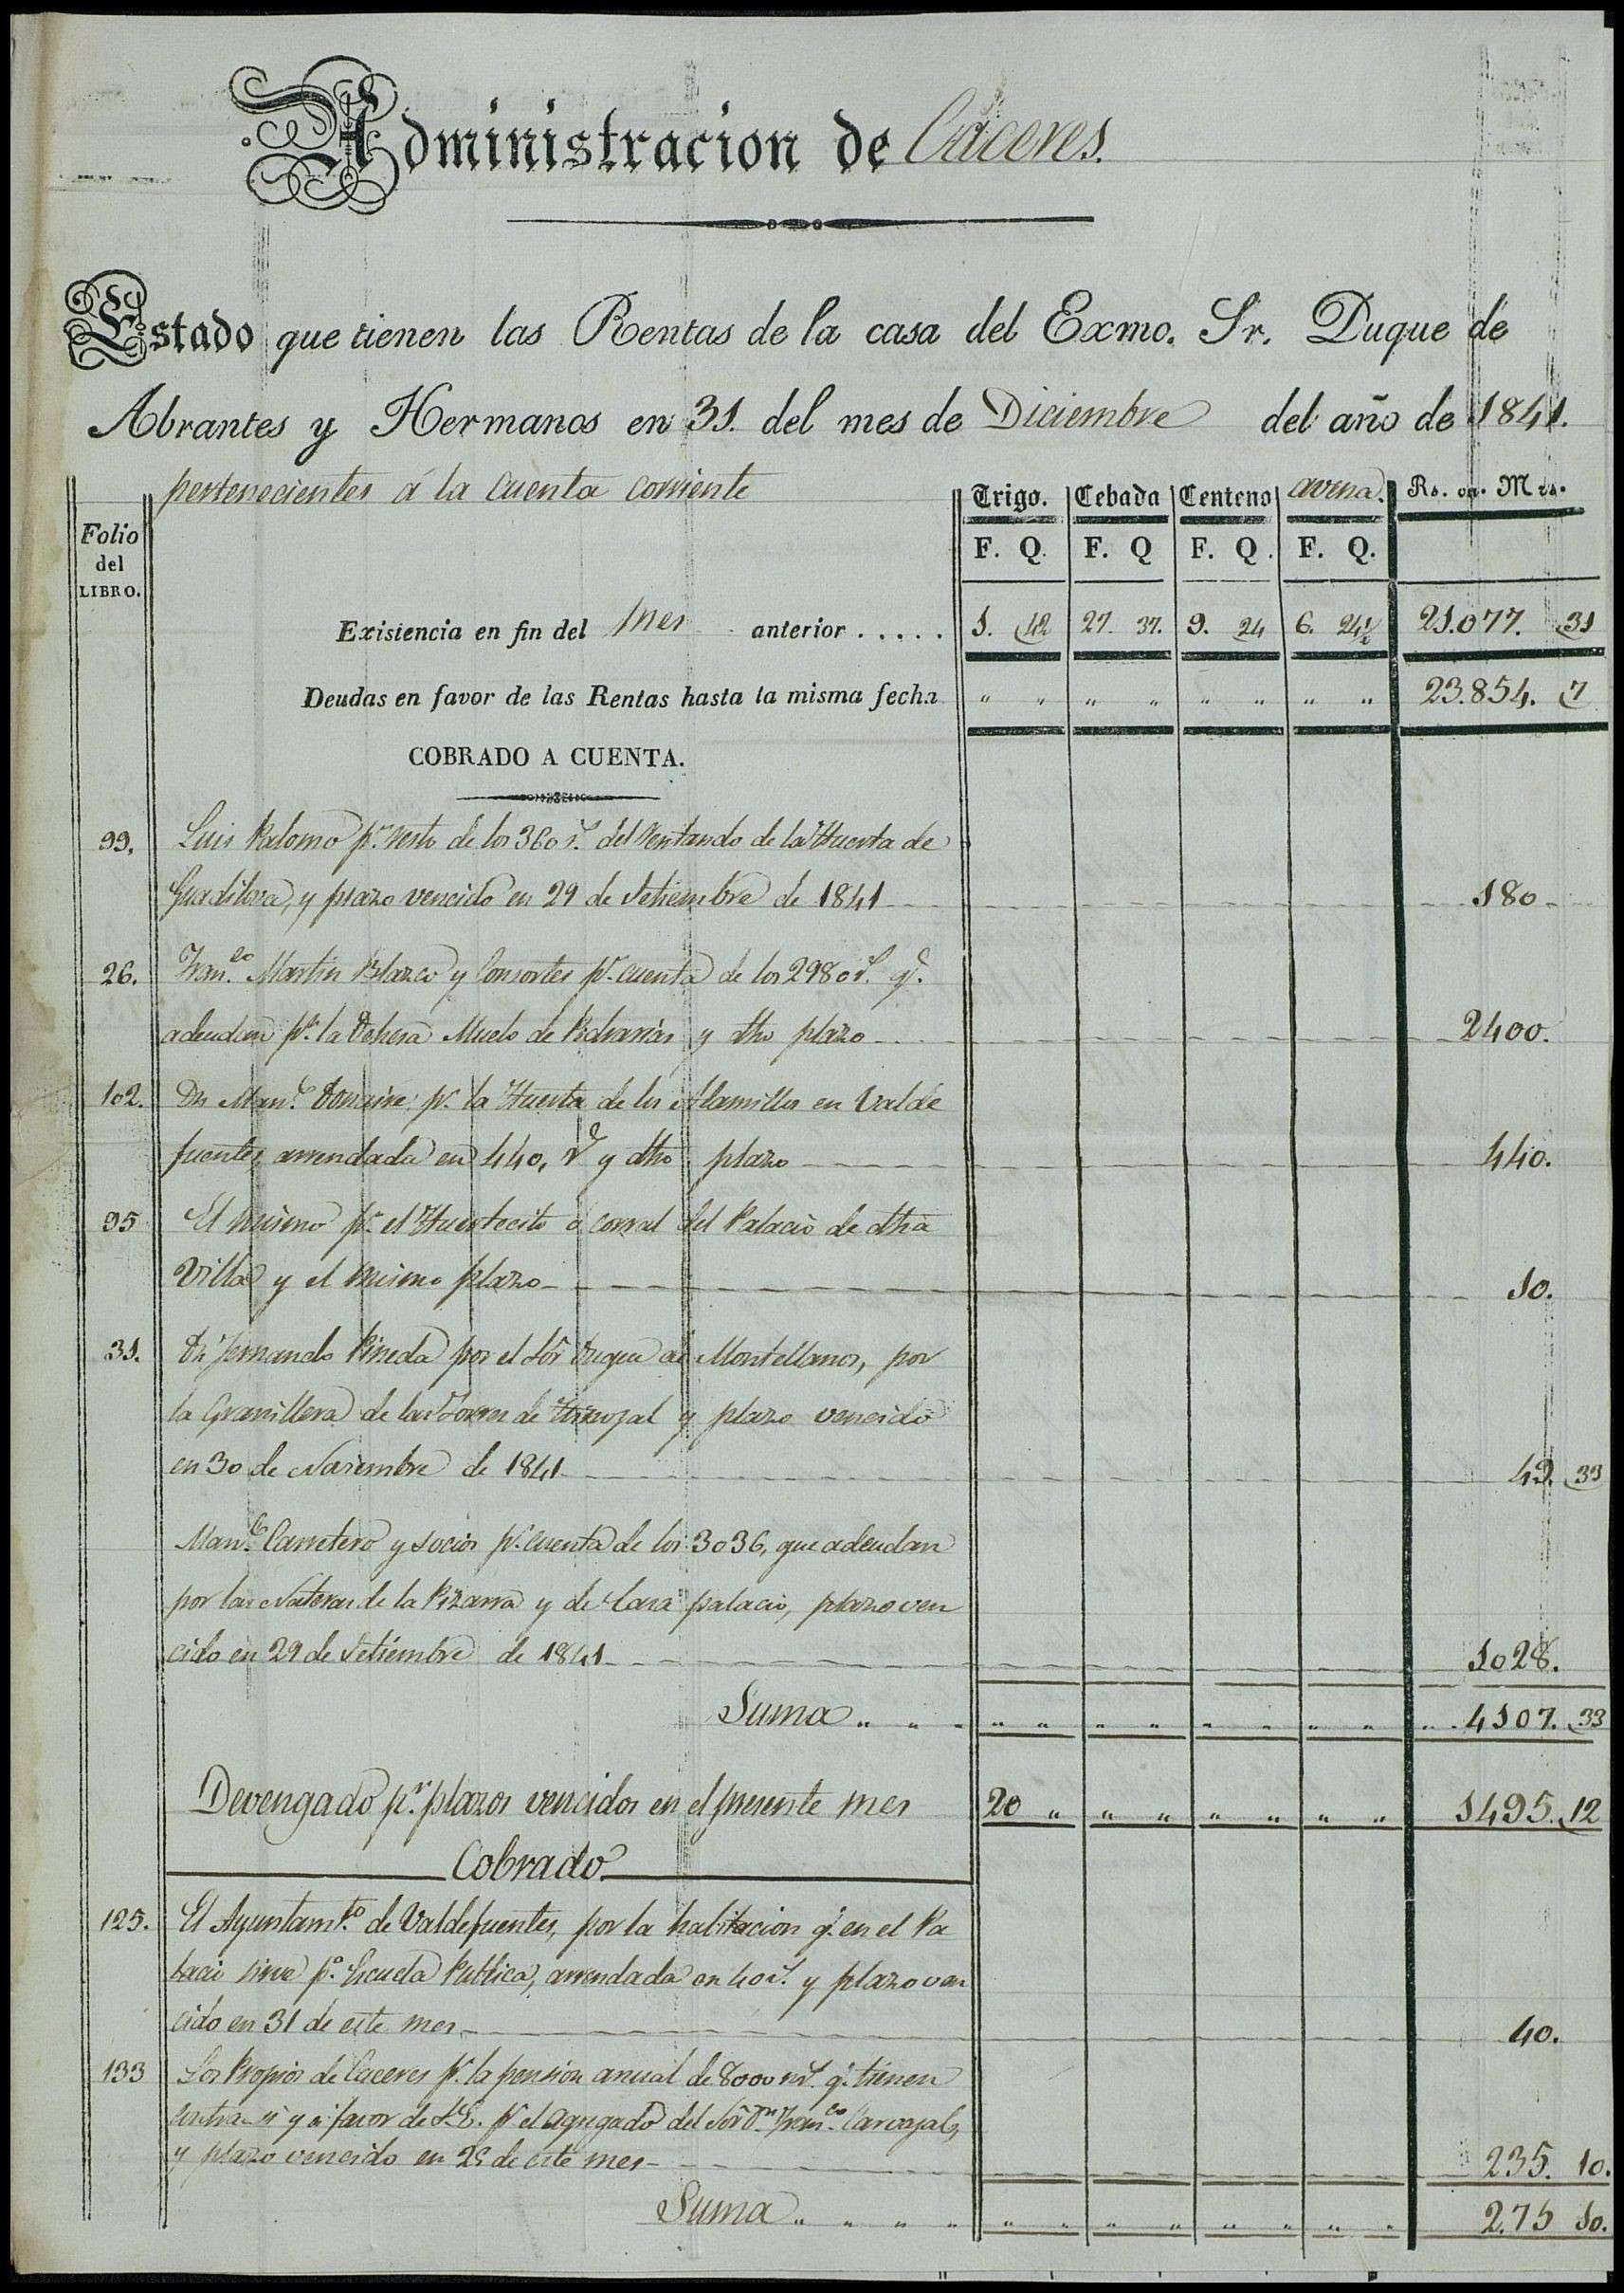 Administracion de Cáceres.
Estado que tienen las Rentas de la casa del Exmo. Sr. Duque de
Abrantes y Hermanos en 31. del mes de Diciembre del año de 1841.
pertenecientes á la cuenta corriente
Folio del LIBRO. Trigo. Cebada Centeno avena. Rs. on. Mrs.
F. Q. F. Q F. Q. F. Q.
Existencia en fin del mes anterior . . . . . 1. 42 27. 37. 9. 24 6. 24½ 21.077. 31
Deudas en favor de las Rentas hasta la misma fecha " " " " " " " " 23.854. 7
COBRADO A CUENTA.
99. Luis Palomo pr. resto de los 360 rs. del rentando de la Huerta de
Guadilova, y plazo vencido en 29 de Setiembre de 1841 180
26. Franco. Martin Blazco y Consortes pr. cuenta de los 2980 rs. qe.
adeudan pr. la Dehesa Muelo de y dho plazo 2400.
102. Dn Manl. pr. la Huerta de los Alamillos en Valde
fuentes arrendada en 440, rs y dho plazo 440.
95 El mismo pr. el Huertecito ó corral del Palacio de dha
Villa y el mismo plazo 10.
31. Dn Fernando Pineda por el Sór Duque de Montellanos, por
la Granillera de las Torres de y plazo vencido
en 30 de Noviembre de 1841 49. 33
Manl. Carretero y socios pr. cuenta de los 3036, que adeudan
por las Nateras de la Pizarra y de Casa palacio, plazo ven
cido en 29 de Setiembre de 1841 1028.
Suma " " " " " " " " " " " 4107. 33
Devengado pr. plazos vencidos en el presente mes 20 " " " " " " " 1495. 12
Cobrado
125. El Ayuntamto. de Valdefuentes, por la habitacion qe. en el Pa
lacio sirve pa. Escuela Publica, arrendada en 40 rs. y plazo ven
cido en 31 de este mes 40.
133 Los Propios de Caceres pr. la pension anual de 8000 rs. qe. tienen
contra sí y á favor de S.E. pr. el agregado del Sór Dn. Franco. Carvajal,
y plazo vencido en 25 de este mes 235. 10.
Suma " " " " " " " " " " " " 275 10.